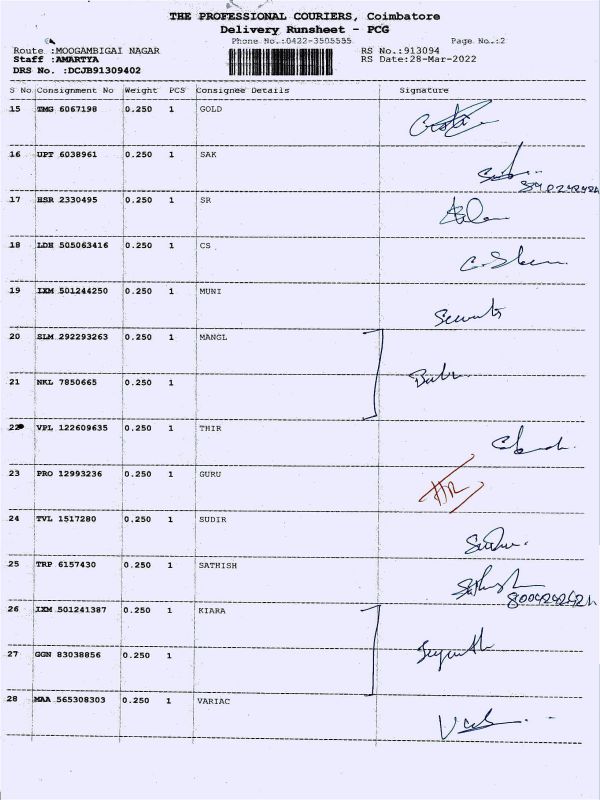 THE PROFESSIONAL COURIERS, Coimbatore
Delivery Runsheet - PCG
Phone No.:0422-3505555 Page No.:2
Route :MOOGAMBIGAI NAGAR RS No.:913094
Staff :AMARTYA RS Date:28-Mar-2022
DRS No. :DCJB91309402
S No Consignment No Weight PCS Consignee Details Signature
15 TMG 6067198 0.250 1 GOLD
16 UPT 6038961 0.250 1 SAK
17 HSR 2330495 0.250 1 SR
18 LDH 505063416 0.250 1 CS
C. 
19 IXM 501244250 0.250 1 MUNI
20 SLM 292293263 0.250 1 MANGL
21 NKL 7850665 0.250 1
22 VPL 122609635 0.250 1 THIR
23 PRO 12993236 0.250 1 GURU
24 TVL 1517280 0.250 1 SUDIR
25 TRP 6157430 0.250 1 SATHISH
Sathish
26 IXM 501241387 0.250 1 KIARA
27 GGN 83038856 0.250 1
28 MAA 565308303 0.250 1 VARIAC